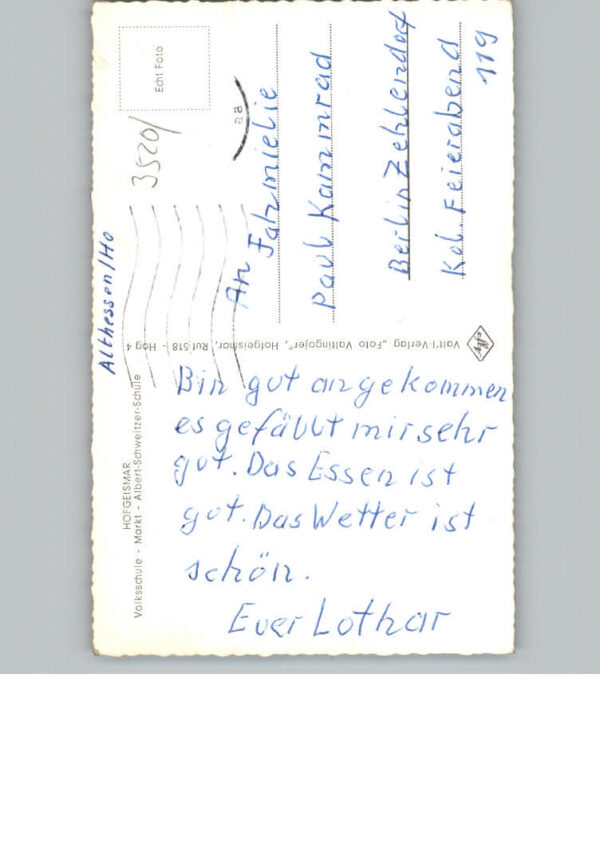 HOFGEISMAR
Volksschule - Markt - Albert-Schweitzer-Schule
Althessen/Ho
Bin gut angekommen
es gefällt mir sehr
gut. Das Essen ist
gut. Das Wetter ist
schön.
Euer Lothar
Echt Foto
3520/
aa
An
Fahmielie
Paul Kammrad
Berlin Zehlendorf
Kol. Feierabend
119
Ruf 518 - Hog 4